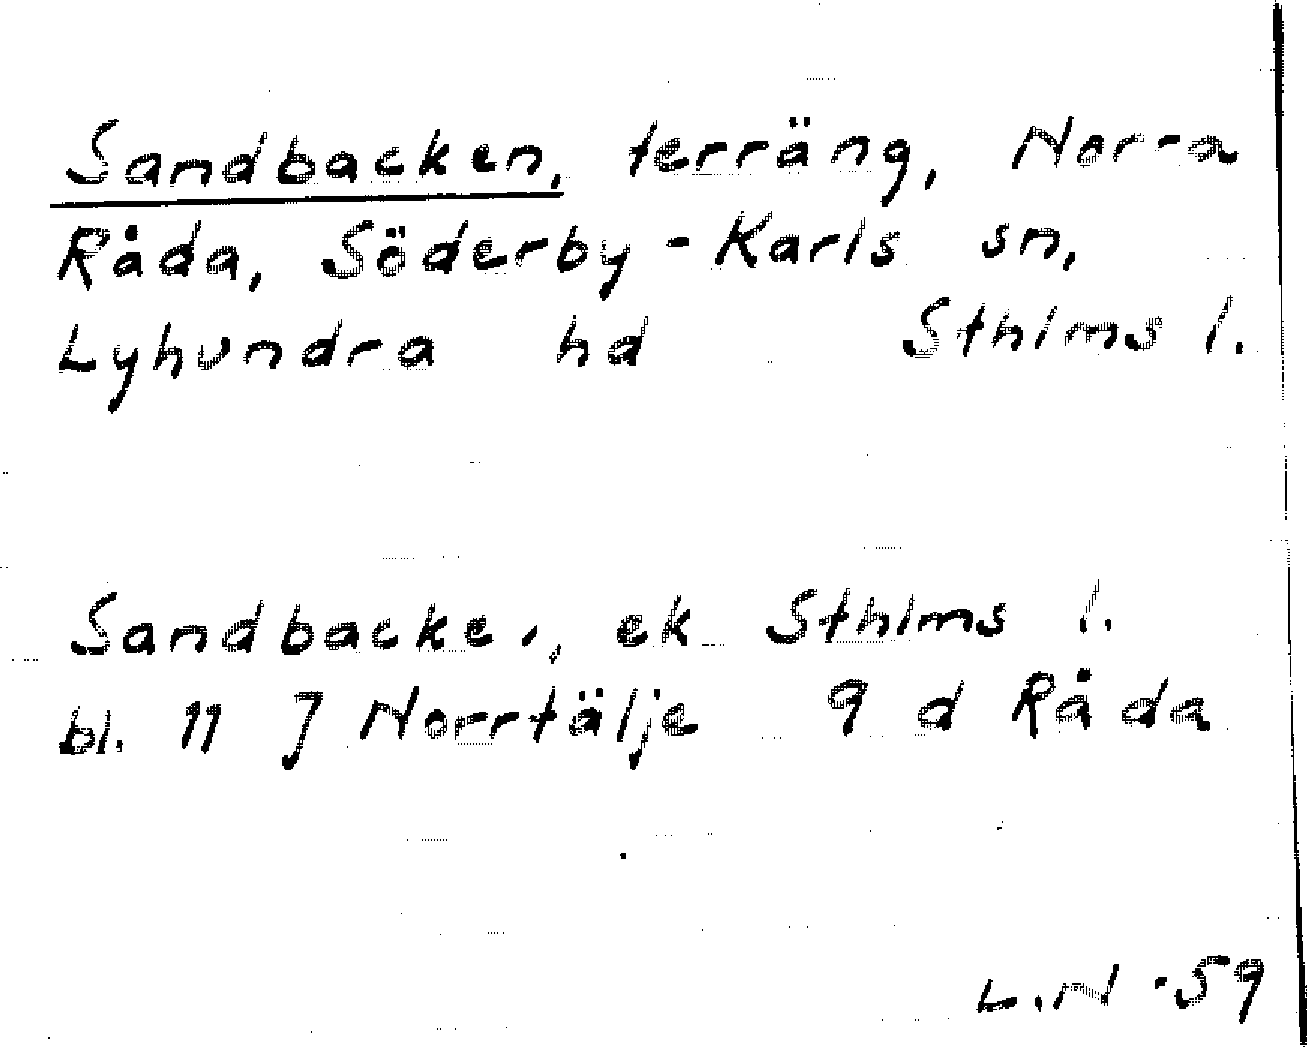 Sandbacken, terräng, Norra
Råda, Söderby-Karls sn,
Lyhundra hd Sthlms l.
Sandbacke., ek Sthlms l.
bl. 11 J Norrtälje 9 d Råda
L.N -59